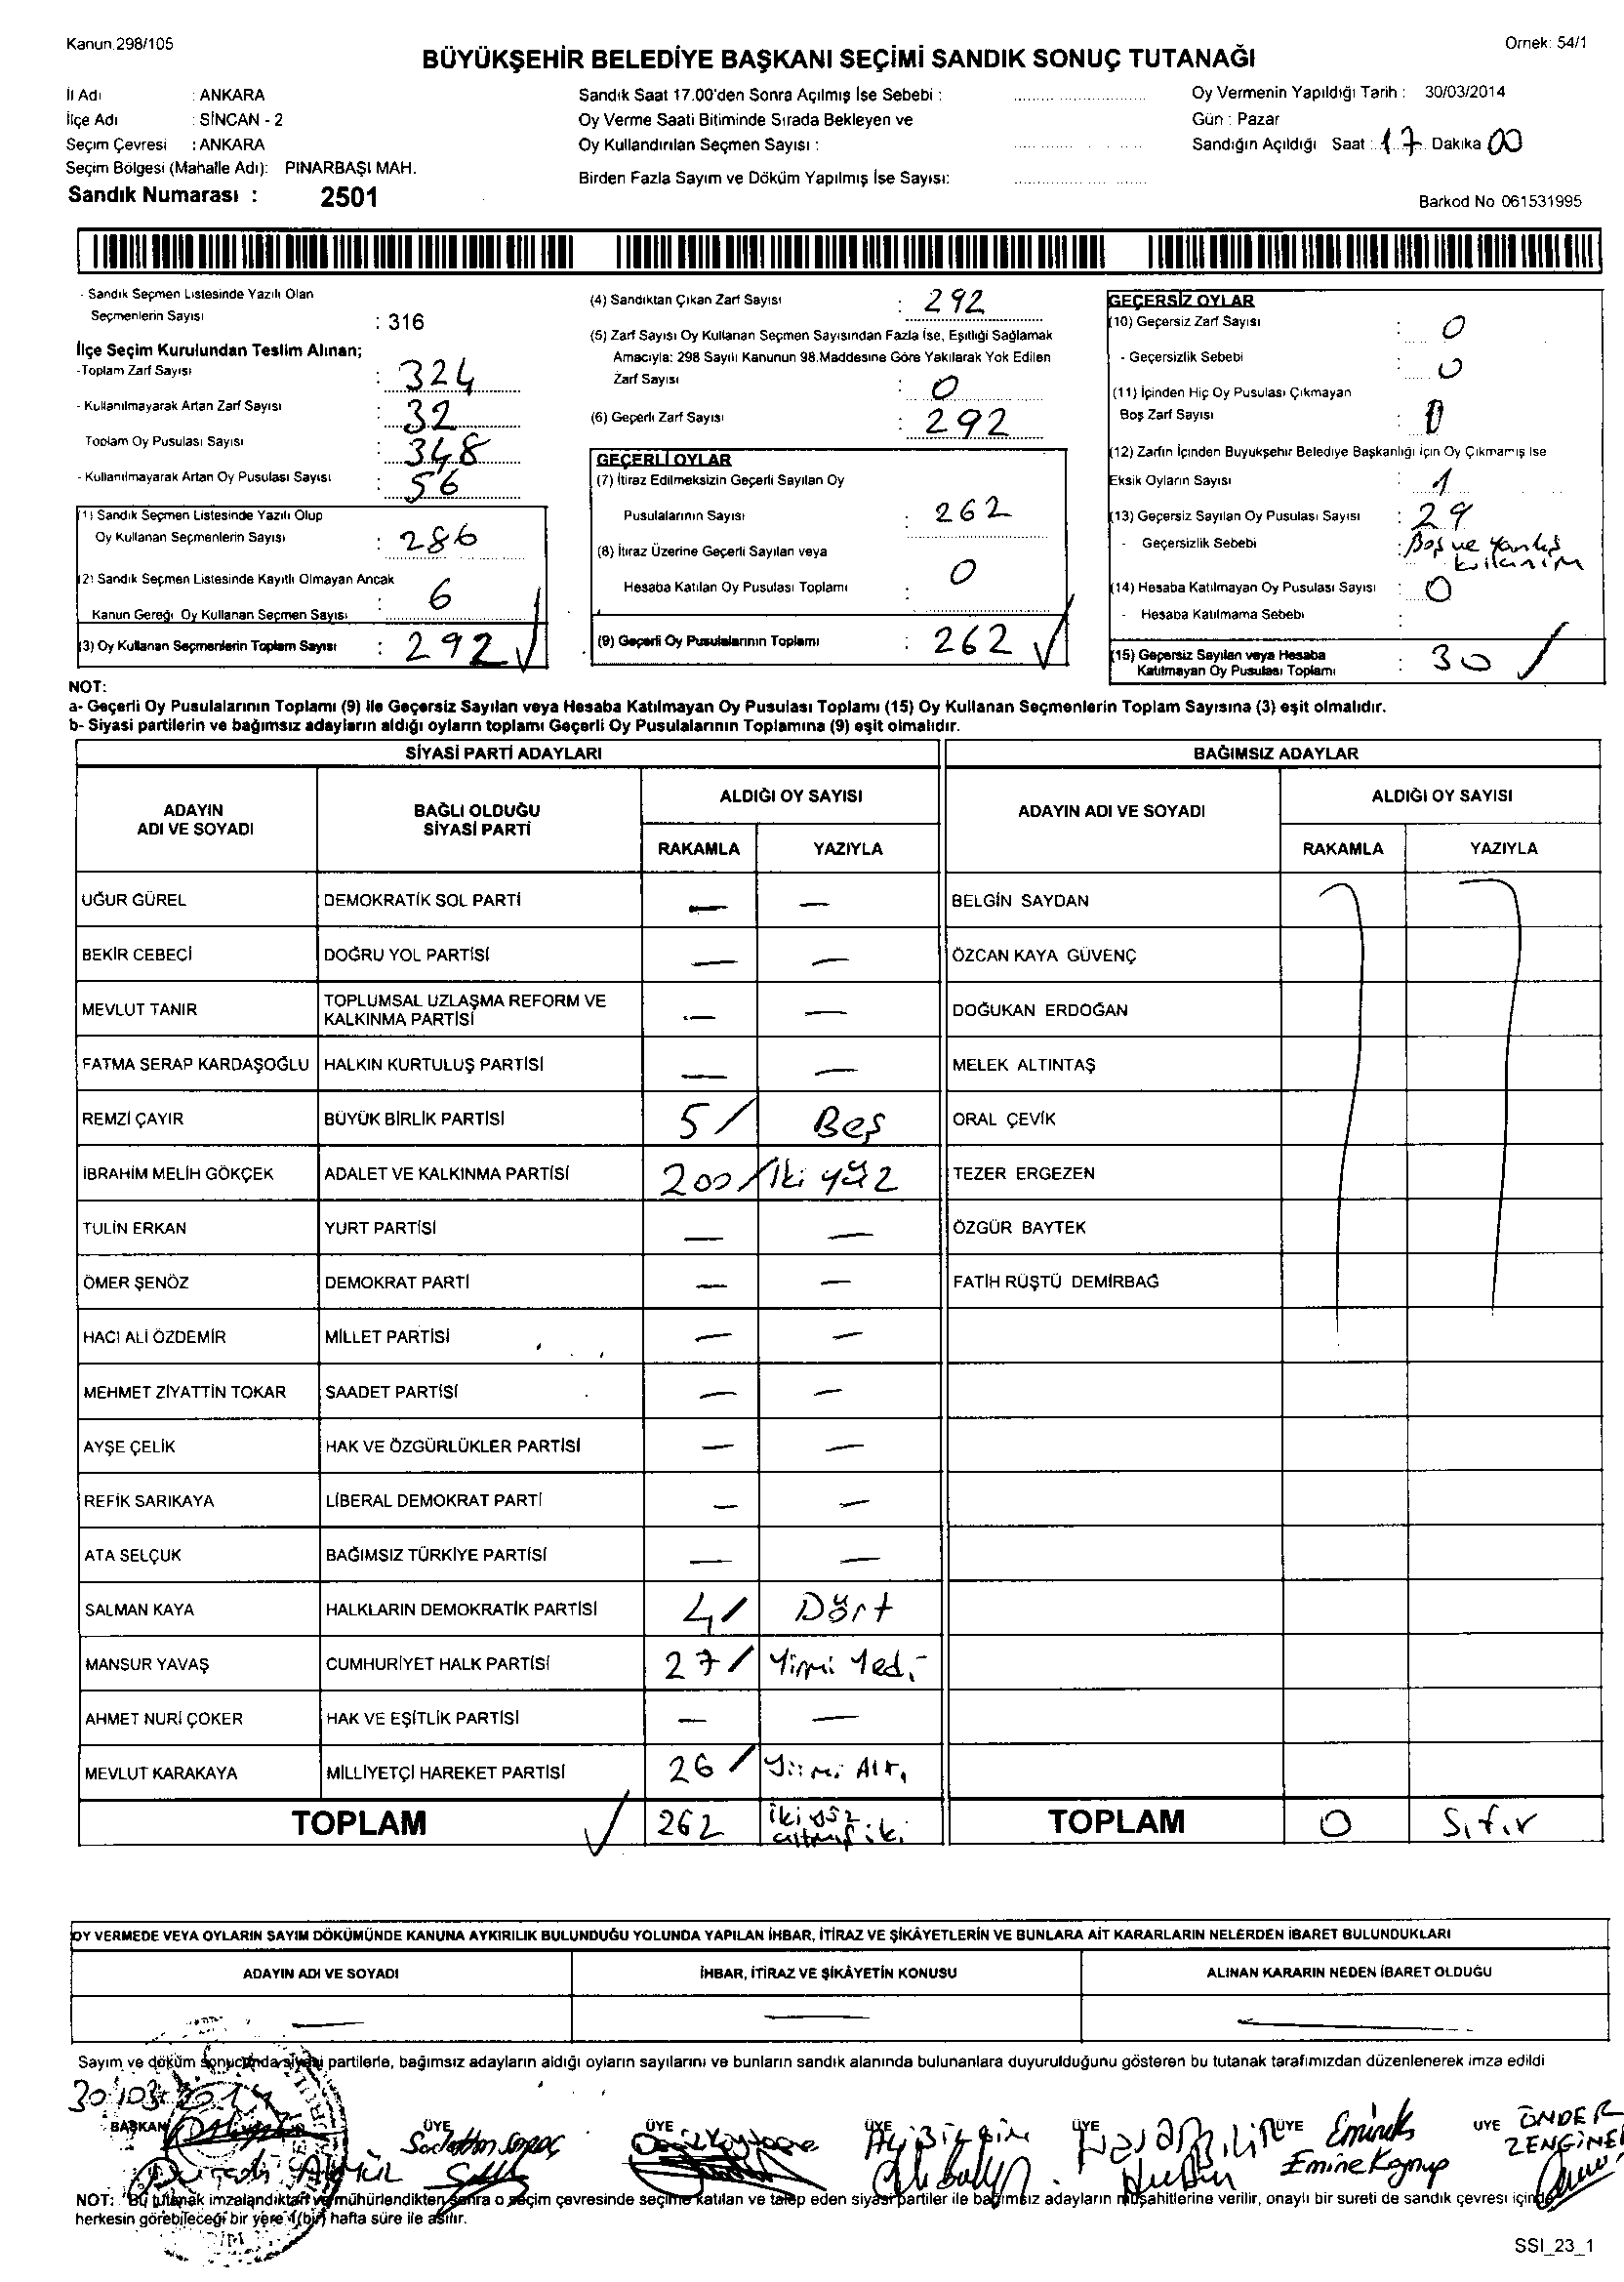 Kanun 298/105
Örnek: 54/1
BÜYÜKŞEHİR BELEDİYE BAŞKANI SEÇİMİ SANDIK SONUÇ TUTANAĞI
İl Adı : ANKARA
İlçe Adı : SİNCAN - 2
Seçim Çevresi : ANKARA
Seçim Bölgesi (Mahalle Adı): PINARBAŞI MAH.
Sandık Numarası : 2501
Sandık Saat 17.00'den Sonra Açılmış İse Sebebi :
Oy Verme Saati Bitiminde Sırada Bekleyen ve
Oy Kullandırılan Seçmen Sayısı :
Birden Fazla Sayım ve Döküm Yapılmış İse Sayısı:
Oy Vermenin Yapıldığı Tarih : 30/03/2014
Gün : Pazar
Sandığın Açıldığı Saat : 17 Dakika 00
Barkod No 061531995
- Sandık Seçmen Listesinde Yazılı Olan
Seçmenlerin Sayısı : 316
İlçe Seçim Kurulundan Teslim Alınan;
-Toplam Zarf Sayısı : 324
- Kullanılmayarak Artan Zarf Sayısı : 32
Toplam Oy Pusulası Sayısı : 348
- Kullanılmayarak Artan Oy Pusulası Sayısı : 56
(1) Sandık Seçmen Listesinde Yazılı Olup
Oy Kullanan Seçmenlerin Sayısı : 286
(2) Sandık Seçmen Listesinde Kayıtlı Olmayan Ancak
Kanun Gereği Oy Kullanan Seçmen Sayısı : 6
(3) Oy Kullanan Seçmenlerin Toplam Sayısı : 292
(4) Sandıktan Çıkan Zarf Sayısı : 292
(5) Zarf Sayısı Oy Kullanan Seçmen Sayısından Fazla İse, Eşitliği Sağlamak
Amacıyla: 298 Sayılı Kanunun 98.Maddesine Göre Yakılarak Yok Edilen
Zarf Sayısı : 0
(6) Geçerli Zarf Sayısı : 292
GEÇERLİ OYLAR
(7) İtiraz Edilmeksizin Geçerli Sayılan Oy
Pusulalarının Sayısı : 262
(8) İtiraz Üzerine Geçerli Sayılan veya
Hesaba Katılan Oy Pusulası Toplamı : 0
(9) Geçerli Oy Pusulalarının Toplamı : 262
GEÇERSİZ OYLAR
(10) Geçersiz Zarf Sayısı : 0
- Geçersizlik Sebebi : 0
(11) İçinden Hiç Oy Pusulası Çıkmayan
Boş Zarf Sayısı : 0
(12) Zarfın İçinden Büyükşehir Belediye Başkanlığı İçin Oy Çıkmamış İse
Eksik Oyların Sayısı : 1
(13) Geçersiz Sayılan Oy Pusulası Sayısı : 29
- Geçersizlik Sebebi : Boş ve Yanlış
kullanım
(14) Hesaba Katılmayan Oy Pusulası Sayısı : 0
- Hesaba Katılmama Sebebi :
(15) Geçersiz Sayılan veya Hesaba
Katılmayan Oy Pusulası Toplamı : 30
NOT:
a- Geçerli Oy Pusulalarının Toplamı (9) ile Geçersiz Sayılan veya Hesaba Katılmayan Oy Pusulası Toplamı (15) Oy Kullanan Seçmenlerin Toplam Sayısına (3) eşit olmalıdır.
b- Siyasi partilerin ve bağımsız adayların aldığı oyların toplamı Geçerli Oy Pusulalarının Toplamına (9) eşit olmalıdır.
SİYASİ PARTİ ADAYLARI BAĞIMSIZ ADAYLAR
ADAYIN
ADI VE SOYADI
BAĞLI OLDUĞU
SİYASİ PARTİ
ALDIĞI OY SAYISI
RAKAMLA YAZIYLA
ADAYIN ADI VE SOYADI
ALDIĞI OY SAYISI
RAKAMLA YAZIYLA
UĞUR GÜREL DEMOKRATİK SOL PARTİ — — BELGİN SAYDAN
BEKİR CEBECİ DOĞRU YOL PARTİSİ — — ÖZCAN KAYA GÜVENÇ
MEVLUT TANIR TOPLUMSAL UZLAŞMA REFORM VE
KALKINMA PARTİSİ — — DOĞUKAN ERDOĞAN
FATMA SERAP KARDAŞOĞLU HALKIN KURTULUŞ PARTİSİ — — MELEK ALTINTAŞ
REMZİ ÇAYIR BÜYÜK BİRLİK PARTİSİ 5 / Beş ORAL ÇEVİK
İBRAHİM MELİH GÖKÇEK ADALET VE KALKINMA PARTİSİ 200 / İki yüz TEZER ERGEZEN
TULİN ERKAN YURT PARTİSİ — — ÖZGÜR BAYTEK
ÖMER ŞENÖZ DEMOKRAT PARTİ — — FATİH RÜŞTÜ DEMİRBAĞ
HACI ALİ ÖZDEMİR MİLLET PARTİSİ — —
MEHMET ZİYATTİN TOKAR SAADET PARTİSİ — —
AYŞE ÇELİK HAK VE ÖZGÜRLÜKLER PARTİSİ — —
REFİK SARIKAYA LİBERAL DEMOKRAT PARTİ — —
ATA SELÇUK BAĞIMSIZ TÜRKİYE PARTİSİ — —
SALMAN KAYA HALKLARIN DEMOKRATİK PARTİSİ 4 / Dört
MANSUR YAVAŞ CUMHURİYET HALK PARTİSİ 27 / Yirmi Yedi
AHMET NURİ ÇOKER HAK VE EŞİTLİK PARTİSİ — —
MEVLUT KARAKAYA MİLLİYETÇİ HAREKET PARTİSİ 26 / Yirmi Altı
TOPLAM 262 iki yüz altmış iki TOPLAM 0 Sıfır
OY VERMEDE VEYA OYLARIN SAYIM DÖKÜMÜNDE KANUNA AYKIRILIK BULUNDUĞU YOLUNDA YAPILAN İHBAR, İTİRAZ VE ŞİKÂYETLERİN VE BUNLARA AİT KARARLARIN NELERDEN İBARET BULUNDUKLARI
ADAYIN ADI VE SOYADI İHBAR, İTİRAZ VE ŞİKÂYETİN KONUSU ALINAN KARARIN NEDEN İBARET OLDUĞU
— — —
Sayım ve döküm sonucunda siyasi partilerle, bağımsız adayların aldığı oyların sayılarını ve bunların sandık alanında bulunanlara duyurulduğunu gösteren bu tutanak tarafımızdan düzenlenerek imza edildi
30/03/2014
BAŞKAN ÜYE ÜYE ÜYE ÜYE ÜYE ÜYE ÖNDER
Emine ZENGİNE
NOT: Bu tutanak imzalandıktan ve mühürlendikten sonra o seçim çevresinde seçime katılan ve talep eden siyasi partiler ile bağımsız adayların müşahitlerine verilir, onaylı bir sureti de sandık çevresi içinde
herkesin görebileceği bir yere 1(bir) hafta süre ile asılır.
SSI_23_1